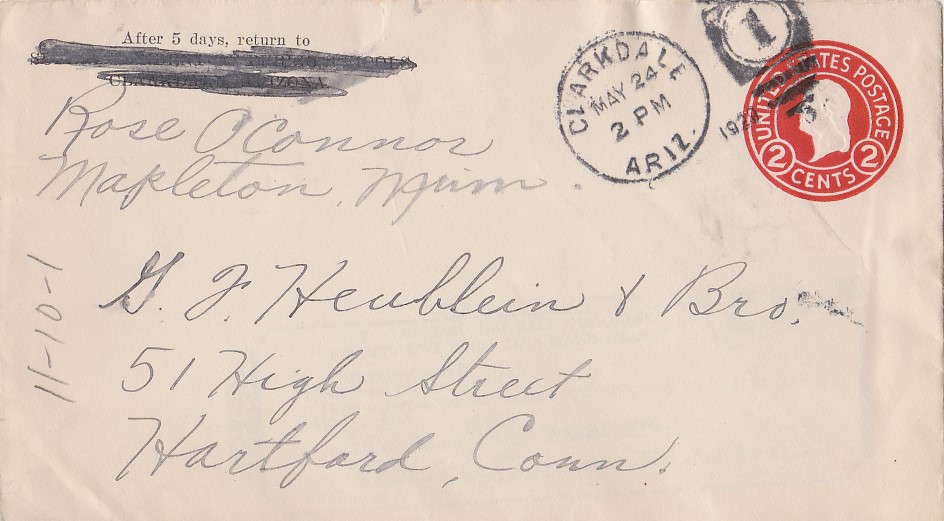 After 5 days, return to
Rose O'Connor
Mapleton, Minn.
CLARKDALE
MAY 24
2 PM
ARIZ.
1
UNITED STATES POSTAGE
2 CENTS 2
G. F. Heublein & Bro.
51 High Street
Hartford, Conn.
11-10-1